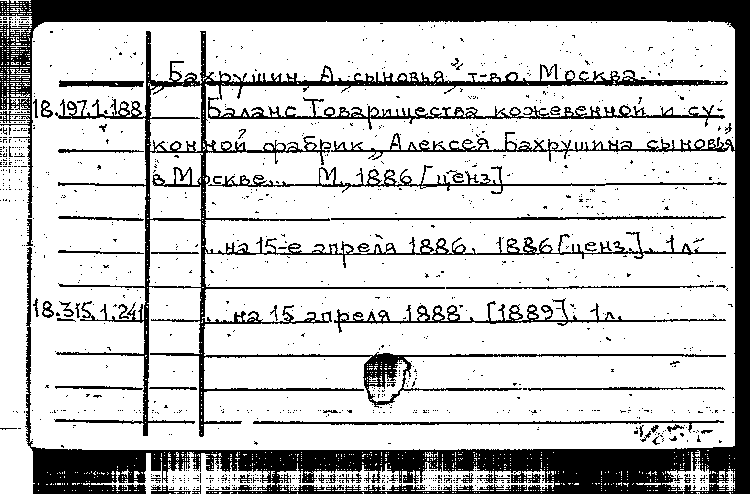 „Бахрушин, А., сыновья", т-во. Москва.
18.197.1.188 Баланс Товарищества кожевенной и су-
конной фабрик „Алексея Бахрушина сыновья"
в Москве... М., 1886 [ценз.]
...на 15-е апреля 1886. 1886 [ценз.]. 1 л.
18.315.1.241 ...на 15 апреля 1888. [1889]. 1 л.